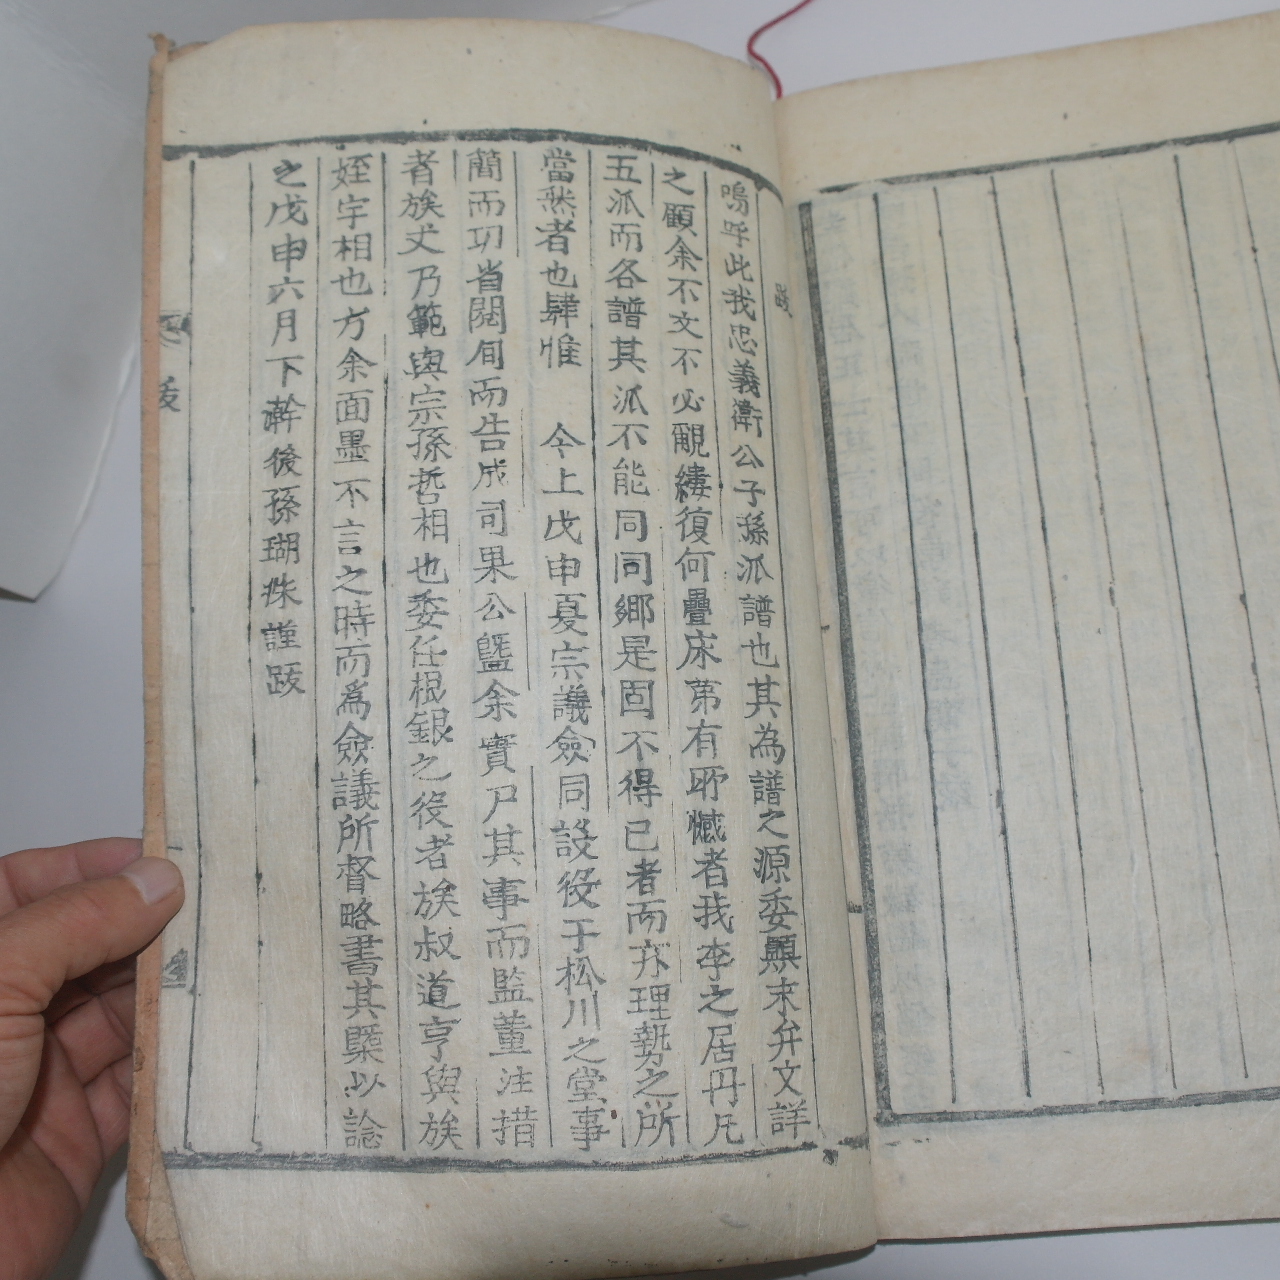 跋
嗚呼此我忠義衛公子孫派譜也其為譜之源委顚末弁文詳
之顧余不文不必覼縷復何疊床第有所憾者我李之居丹凡
五派而各譜其派不能同同鄉是固不得已者而亦理勢之所
當然者也肆惟 今上戊申夏宗議僉同設役于松川之堂事
蕳而功省閱旬而告成司果公曁余實尸其事而監董注措
者族丈乃範與宗孫哲相也委任根銀之役者族叔道亨與族
姪宇相也方余面墨不言之時而爲僉議所督略書其槩以諗
之戊申六月下澣後孫瑚姝謹跋
跋